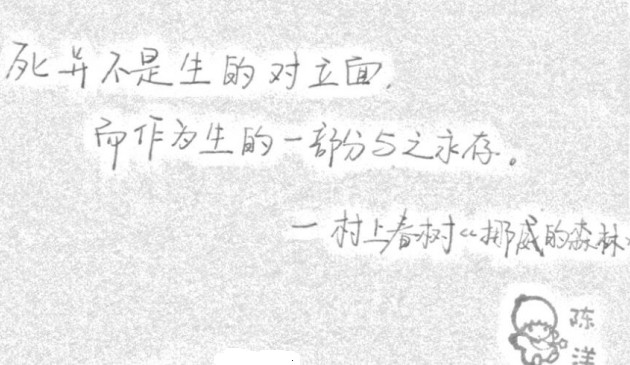 死并不是生的对立面,
而作为生的一部分与之永存。
一 村上春树《挪威的森林》
陈洋